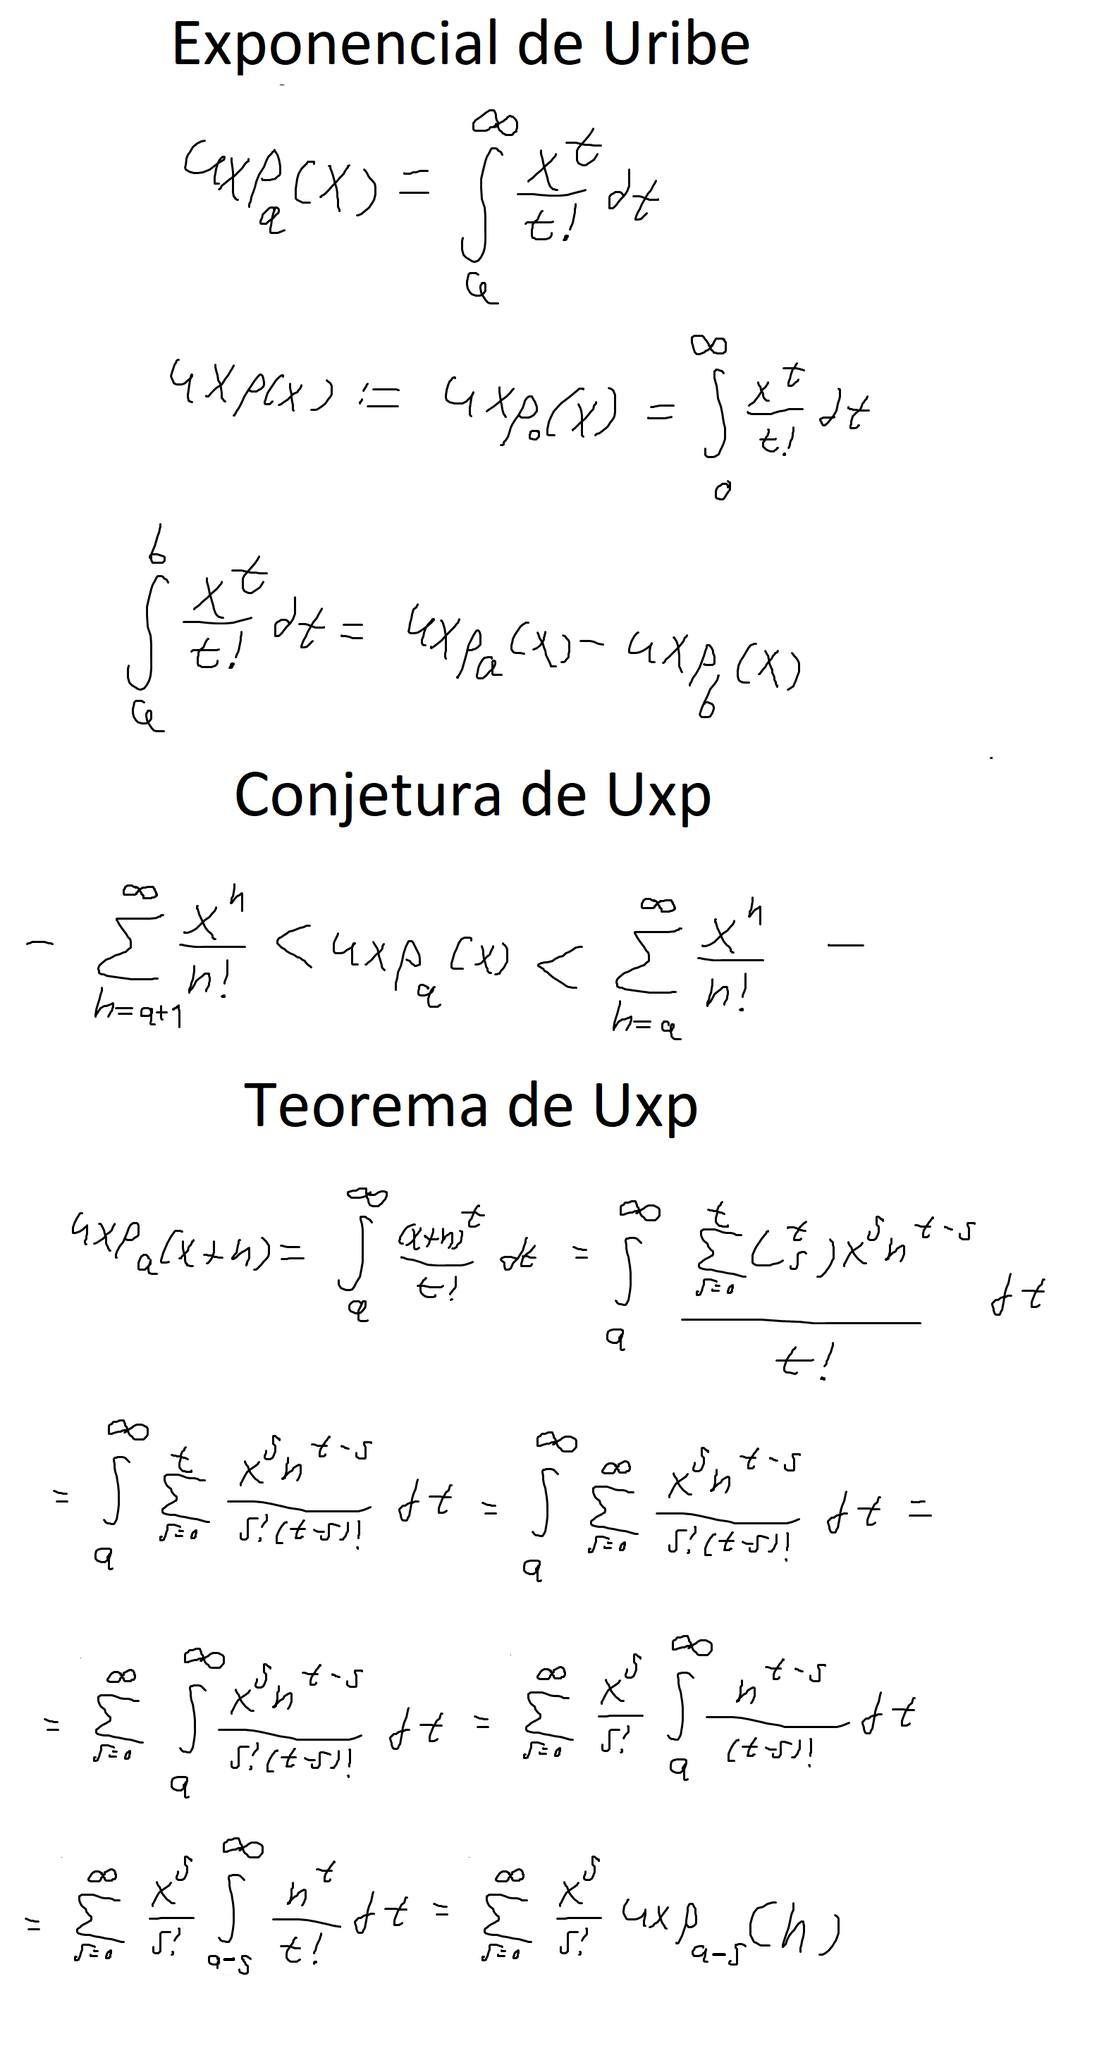 Exponencial de Uribe
uxpₐ(x) = ∫ₐ^∞ x^t/t! dt
uxp(x) := uxp₀(x) = ∫₀^∞ x^t/t! dt
∫ₐ^b x^t/t! dt = uxpₐ(x) - uxp_b(x)
Conjetura de Uxp
- ∑_{n=a+1}^∞ x^n/n! < uxpₐ(x) < ∑_{n=a}^∞ x^n/n! -
Teorema de Uxp
uxpₐ(x+n) = ∫ₐ^∞ (x+n)^t/t! dt = ∫ₐ^∞ (∑_{s=0}^t (t s) x^s n^{t-s})/t! dt
= ∫ₐ^∞ ∑_{s=0}^t x^s n^{t-s}/s!(t-s)! dt = ∫ₐ^∞ ∑_{s=0}^∞ x^s n^{t-s}/s!(t-s)! dt =
= ∑_{s=0}^∞ ∫ₐ^∞ x^s n^{t-s}/s!(t-s)! dt = ∑_{s=0}^∞ x^s/s! ∫ₐ^∞ n^{t-s}/(t-s)! dt
= ∑_{s=0}^∞ x^s/s! ∫_{a-s}^∞ n^t/t! dt = ∑_{s=0}^∞ x^s/s! uxp_{a-s}(n)